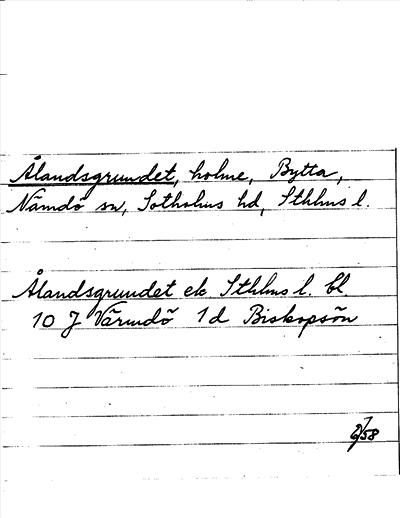 Ålandsgrundet, holme, Bytta,
Nämdö sn, Sotholms hd, Sthlms l.
Ålandsgrundet ek Sthlms l. bl.
10 J Värmdö 1d Biskopsön
6/58